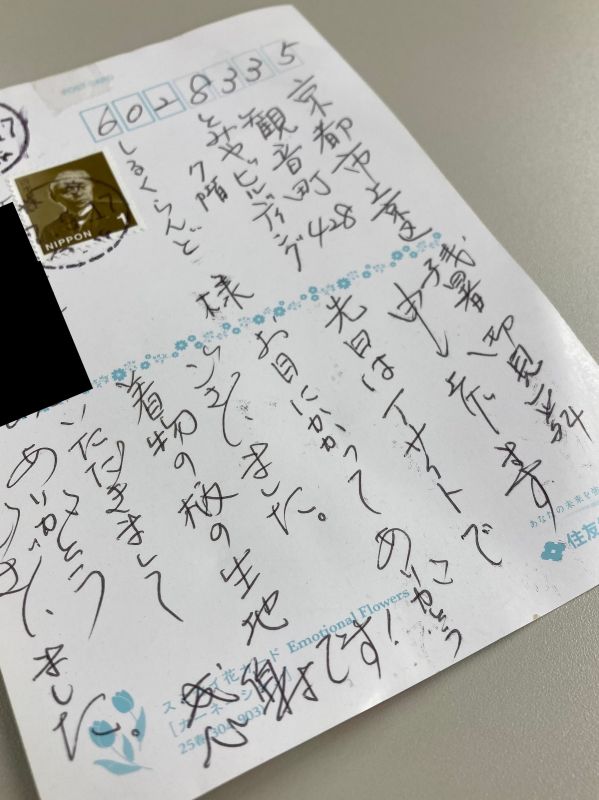 POST CARD
6028335
京都市上京区
観音町428
とみやビルディング
7階
しるくらんど
様
NIPPON
1
残暑御見舞
申し上げます
先日はアメイトで
お目にかかって ありがとう
ございました。
着物の板の生地
いただきまして
ありがとう
ございました。
感謝です!
あなたの未来を強
住友
Emotional Flowers
スミセイ花カード
[カーネーション]